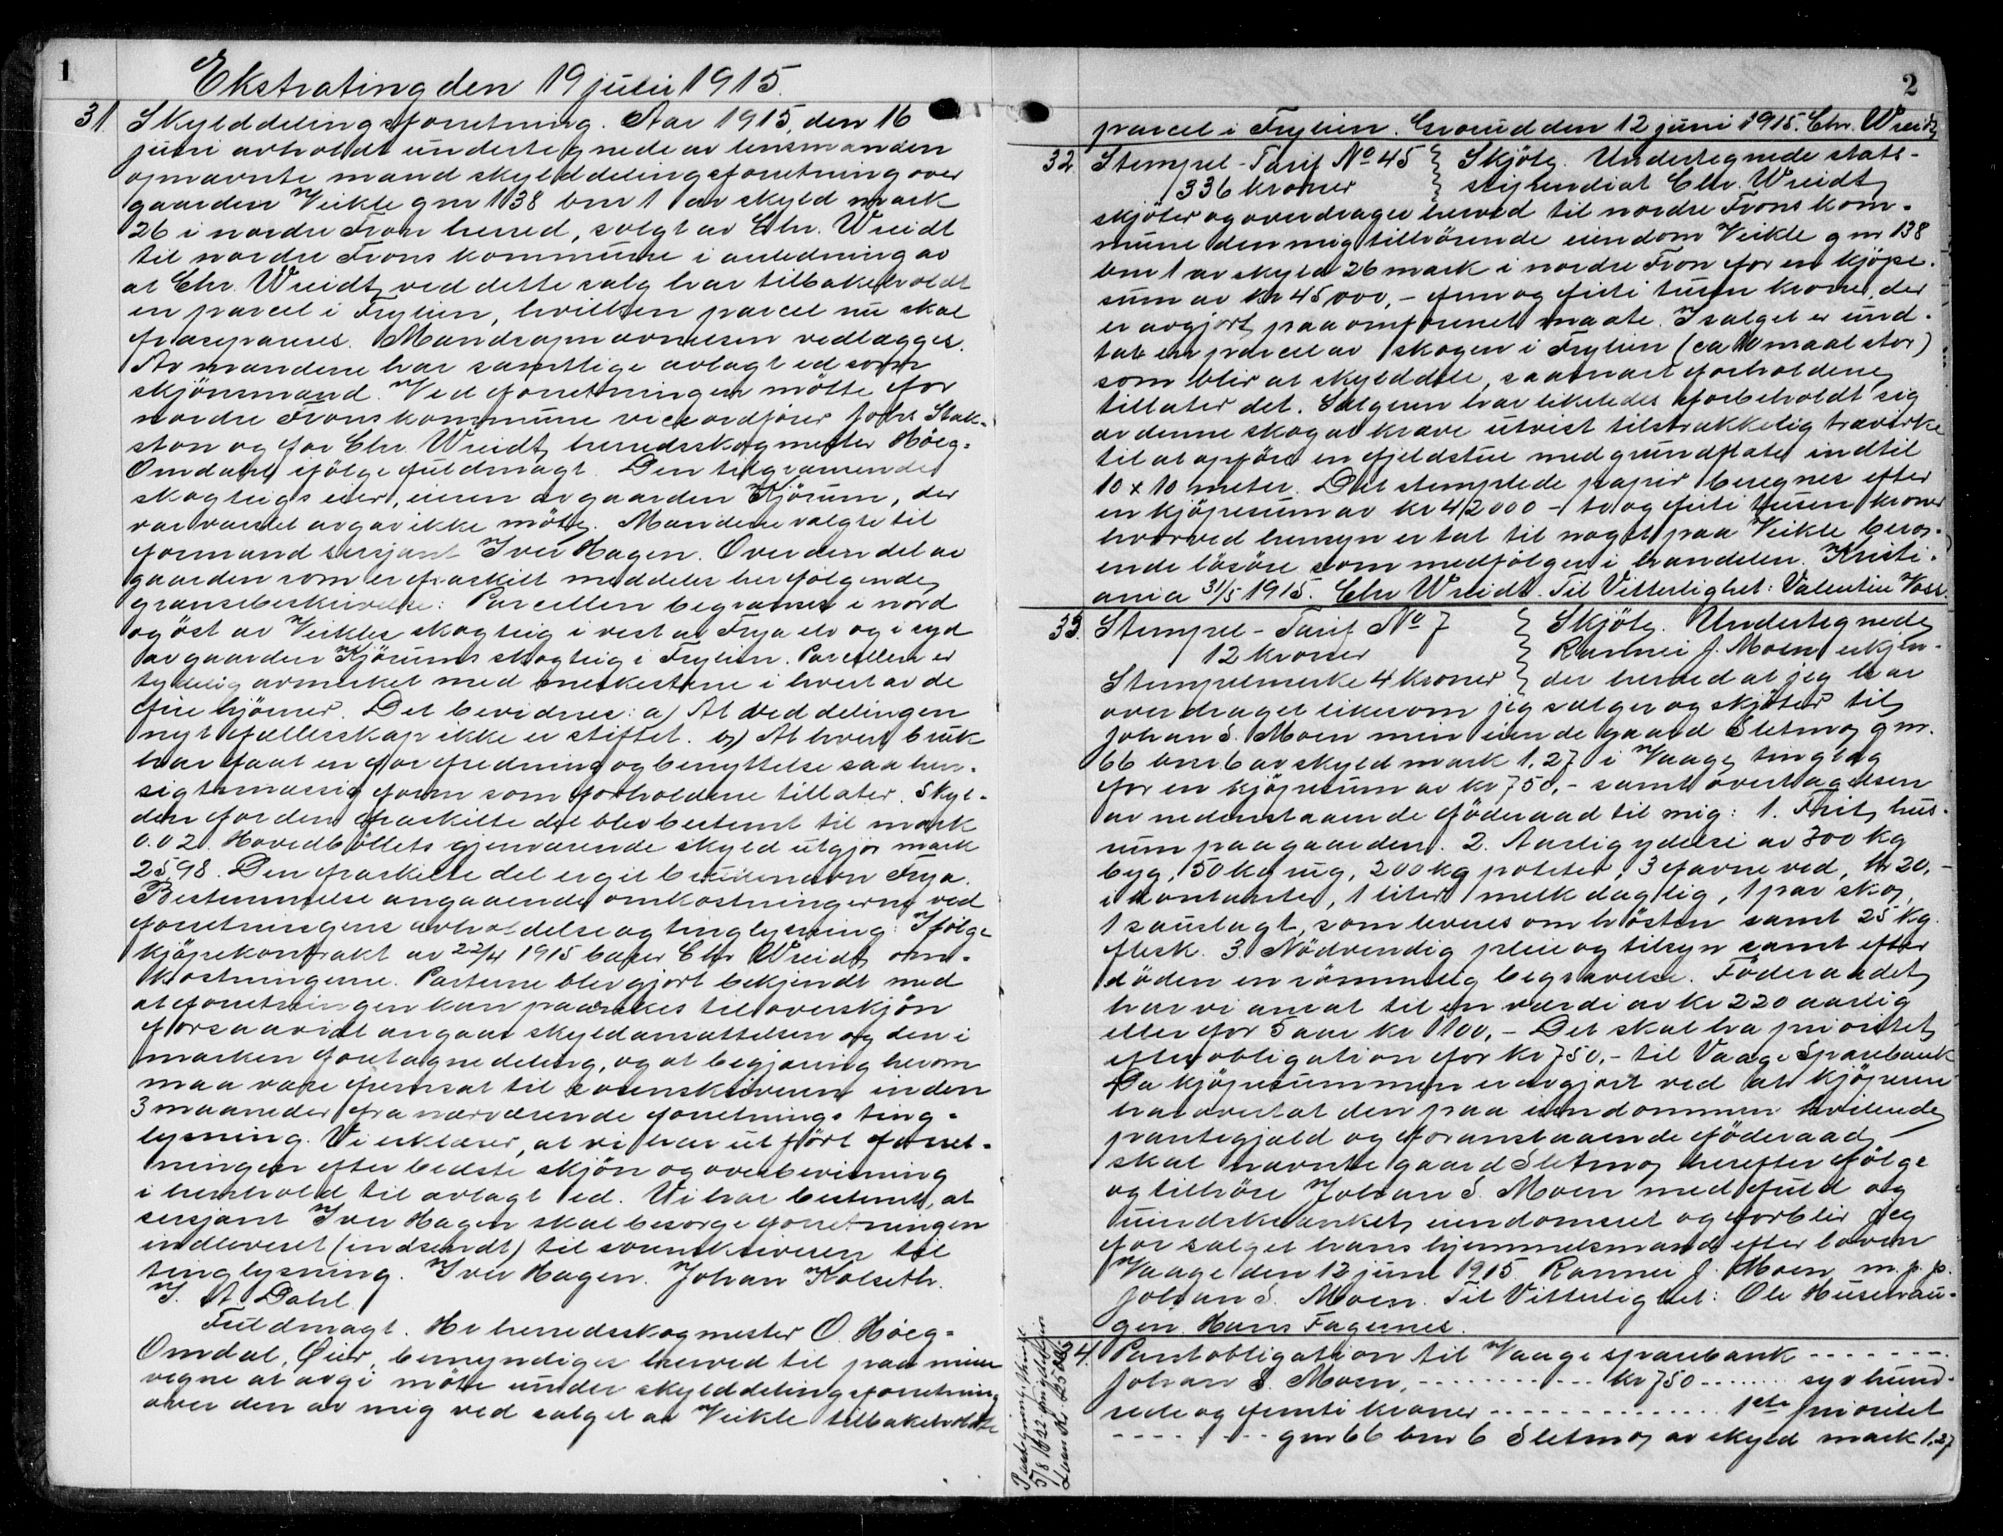 1
Ekstrating den 19 juli 1915.
31. Skylddelingsforretning. Aar 1915, den 16
juni avholdt undertegnede av lensmanden
opnævnte mænd skylddelingsforretning over
gaarden Veikle gnr 138 bnr 1 av skyld mark
26 i nordre Fron herred, solgt av Chr. Wreidt
til nordre Frons kommune i anledning av
at Chr. Wreidt ved dette salg har tilbakeholdt
en parcel i Frylien, hvilken parcel nu skal
frasepareres. Mandsopnævnelsen vedlægges.
Av mændene har samtlige avlagt ed som
skjønsmænd. Ved forretningen møtte for
nordre Frons kommune viceordfører Johs Stok-
ston og for Chr. Wreidt herredsskogmester Höeg-
Omdahl ifølge fuldmagt. Den tilgrænsende
skogteigs eier, eieren av gaarden Kjørum, der
var varslet avgav ikke møte. Mændene valgte til
formand sersjant Iver Hagen. Over den del av
gaarden som er fraskilt meddeles her følgende
grænsebeskrivelse: Parcellen begrænses i nord
og øst av Veikles skogteig i vest av Frya elv og i syd
av gaarden Kjørums skogteig i Frylien. Parcellen er
tydelig avmerket med merkestene i hvert av de
fire hjørner. Det bevidnes: a) At ved delingen
nyt fællesskap ikke er stiftet. b) At hvert bruk
har faat en for fredning og benyttelse saa hen-
sigtsmæssig form som forholdene tillater. Skyl-
den for den fraskilte del blev bestemt til mark
0.02. Hovedbøllets gjenværende skyld utgjør mark
25,98. Den fraskilte del er git bruksnavn Frya.
Bestemmelse angaaende omkostningerne ved
forretningens avholdelse og tinglysning: Ifølge
kjøpekontrakt av 22/4 1915 bærer Chr Wreidt om-
kostningerne. Parterne blev gjort bekjendt med
at forretningen kan paaankes til overskjøn
forsaavidt angaar skyldansættelsen og den i
marken foretagne deling, og at begjæring herom
maa være fremsat til sorenskriveren inden
3 maaneder fra nærværende forretnings ting-
lysning. Vi erklærer, at vi har utført forret-
ningen efter bedste skjøn og overbevisning
i henhold til avlagt ed. Vi har bestemt, at
sersjant Iver Hagen skal besørge forretningen
indleveret (indsendt) til sorenskriveren til
tinglysning. Iver Hagen. Johan Kolseth.
T. A Dahl.
Fuldmagt. Hr herredsskogmester O. Höeg-
Omdal, Øier, bemyndiges herved til paa mine
vegne at avgi møte under skylddelingsforretning
over den av mig ved salget av Veikle tilbakeholdte
2
parcel i Frylien. Grorud den 12 juni 1915. Chr. Wreidt
32. Stempel-Tarif No 45 } Skjøte. Undertegnede stats-
336 kroner } stipendiat Chr. Wreidt
skjøter og overdrager herved til nordre Frons kom-
mune den mig tilhørende eiendom Veikle gnr 138
bnr 1 av skyld 26 mark i nordre Fron for en kjøpe-
sum av kr 45000,- fem og firti tusen kroner, der
er avgjort paa omforenet maate. I salget er und-
tat en parcel av skogen i Frylien (ca 10 maal stor)
som blir at skylddele, saasnart forholdene
tillater det. Sælgeren har likeledes forbeholdt sig
av denne skog at kræve utvist tilstrækkelig trævirke
til at opføre en fjeldstue med grundflate indtil
10 x 10 meter. Det stemplede papir beregnes efter
en kjøpesum av kr 42000 - to og firti tusen kroner
hvorved hensyn er tat til noget paa Veikle bero-
ende løsøre som medfølger i handelen. Kristi-
ania 31/5 1915. Chr Wreidt. Til Vitterlighet: Valentin Voss.
33. Stempel-Tarif No 7 } Skjøte. Undertegnede
12 kroner } Rannei J. Moen erkjen-
Stempelmerke 4 kroner } der herved at jeg har
overdraget likesom jeg sælger og skjøter til
Johan S. Moen min eiende gaard Sletmo gnr.
66 bnr 6 av skyld mark 1.27 i Vaage tinglag
for en kjøpesum av kr 750,- samt overtagelsen
av nedenstaaende føderaad til mig: 1. Frit hus-
rum paa gaarden. 2. Aarlig ydelse av 300 kg
byg, 50 kg rug, 200 kg poteter, 3 favne ved, kr 20,-
i kontanter, 1 liter melk daglig, 1 par sko,
1 sauslagt, som leveres om høsten samt 25 kg.
flesk. 3. Nødvendig pleie og tilsyn samt efter
døden en sømmelig begravelse. Føderaadet
har vi ansat til en værdi av kr 220 aarlig
eller for 5 aar kr 1100,- Det skal ha prioritet
efter obligation for kr 750.- til Vaage Sparebank
Da kjøpesummen er avgjort ved at kjøperen
har overtat den paa eiendommen hvilende
pantegjæld og foranstaaende føderaad,
skal nævnte gaard Sletmo herefter følge
og tilhøre Johan S. Moen med fuld og
uindskrænket eiendomsret og forblir jeg
for salget hans hjemmelsmand efter loven
Vaage den 12 juni 1915. Rannei J. Moen m.p.p.
Johan S. Moen. Til Vitterlighet: Ole Husevaa-
gen. Hans Fagernes.
4. Pantobligation til Vaage sparebank
Johan S. Moen, kr 750 syv hund-
rede og femti kroner 1ste prioritet
gnr 66 bnr 6 Sletmo av skyld mark 1,27